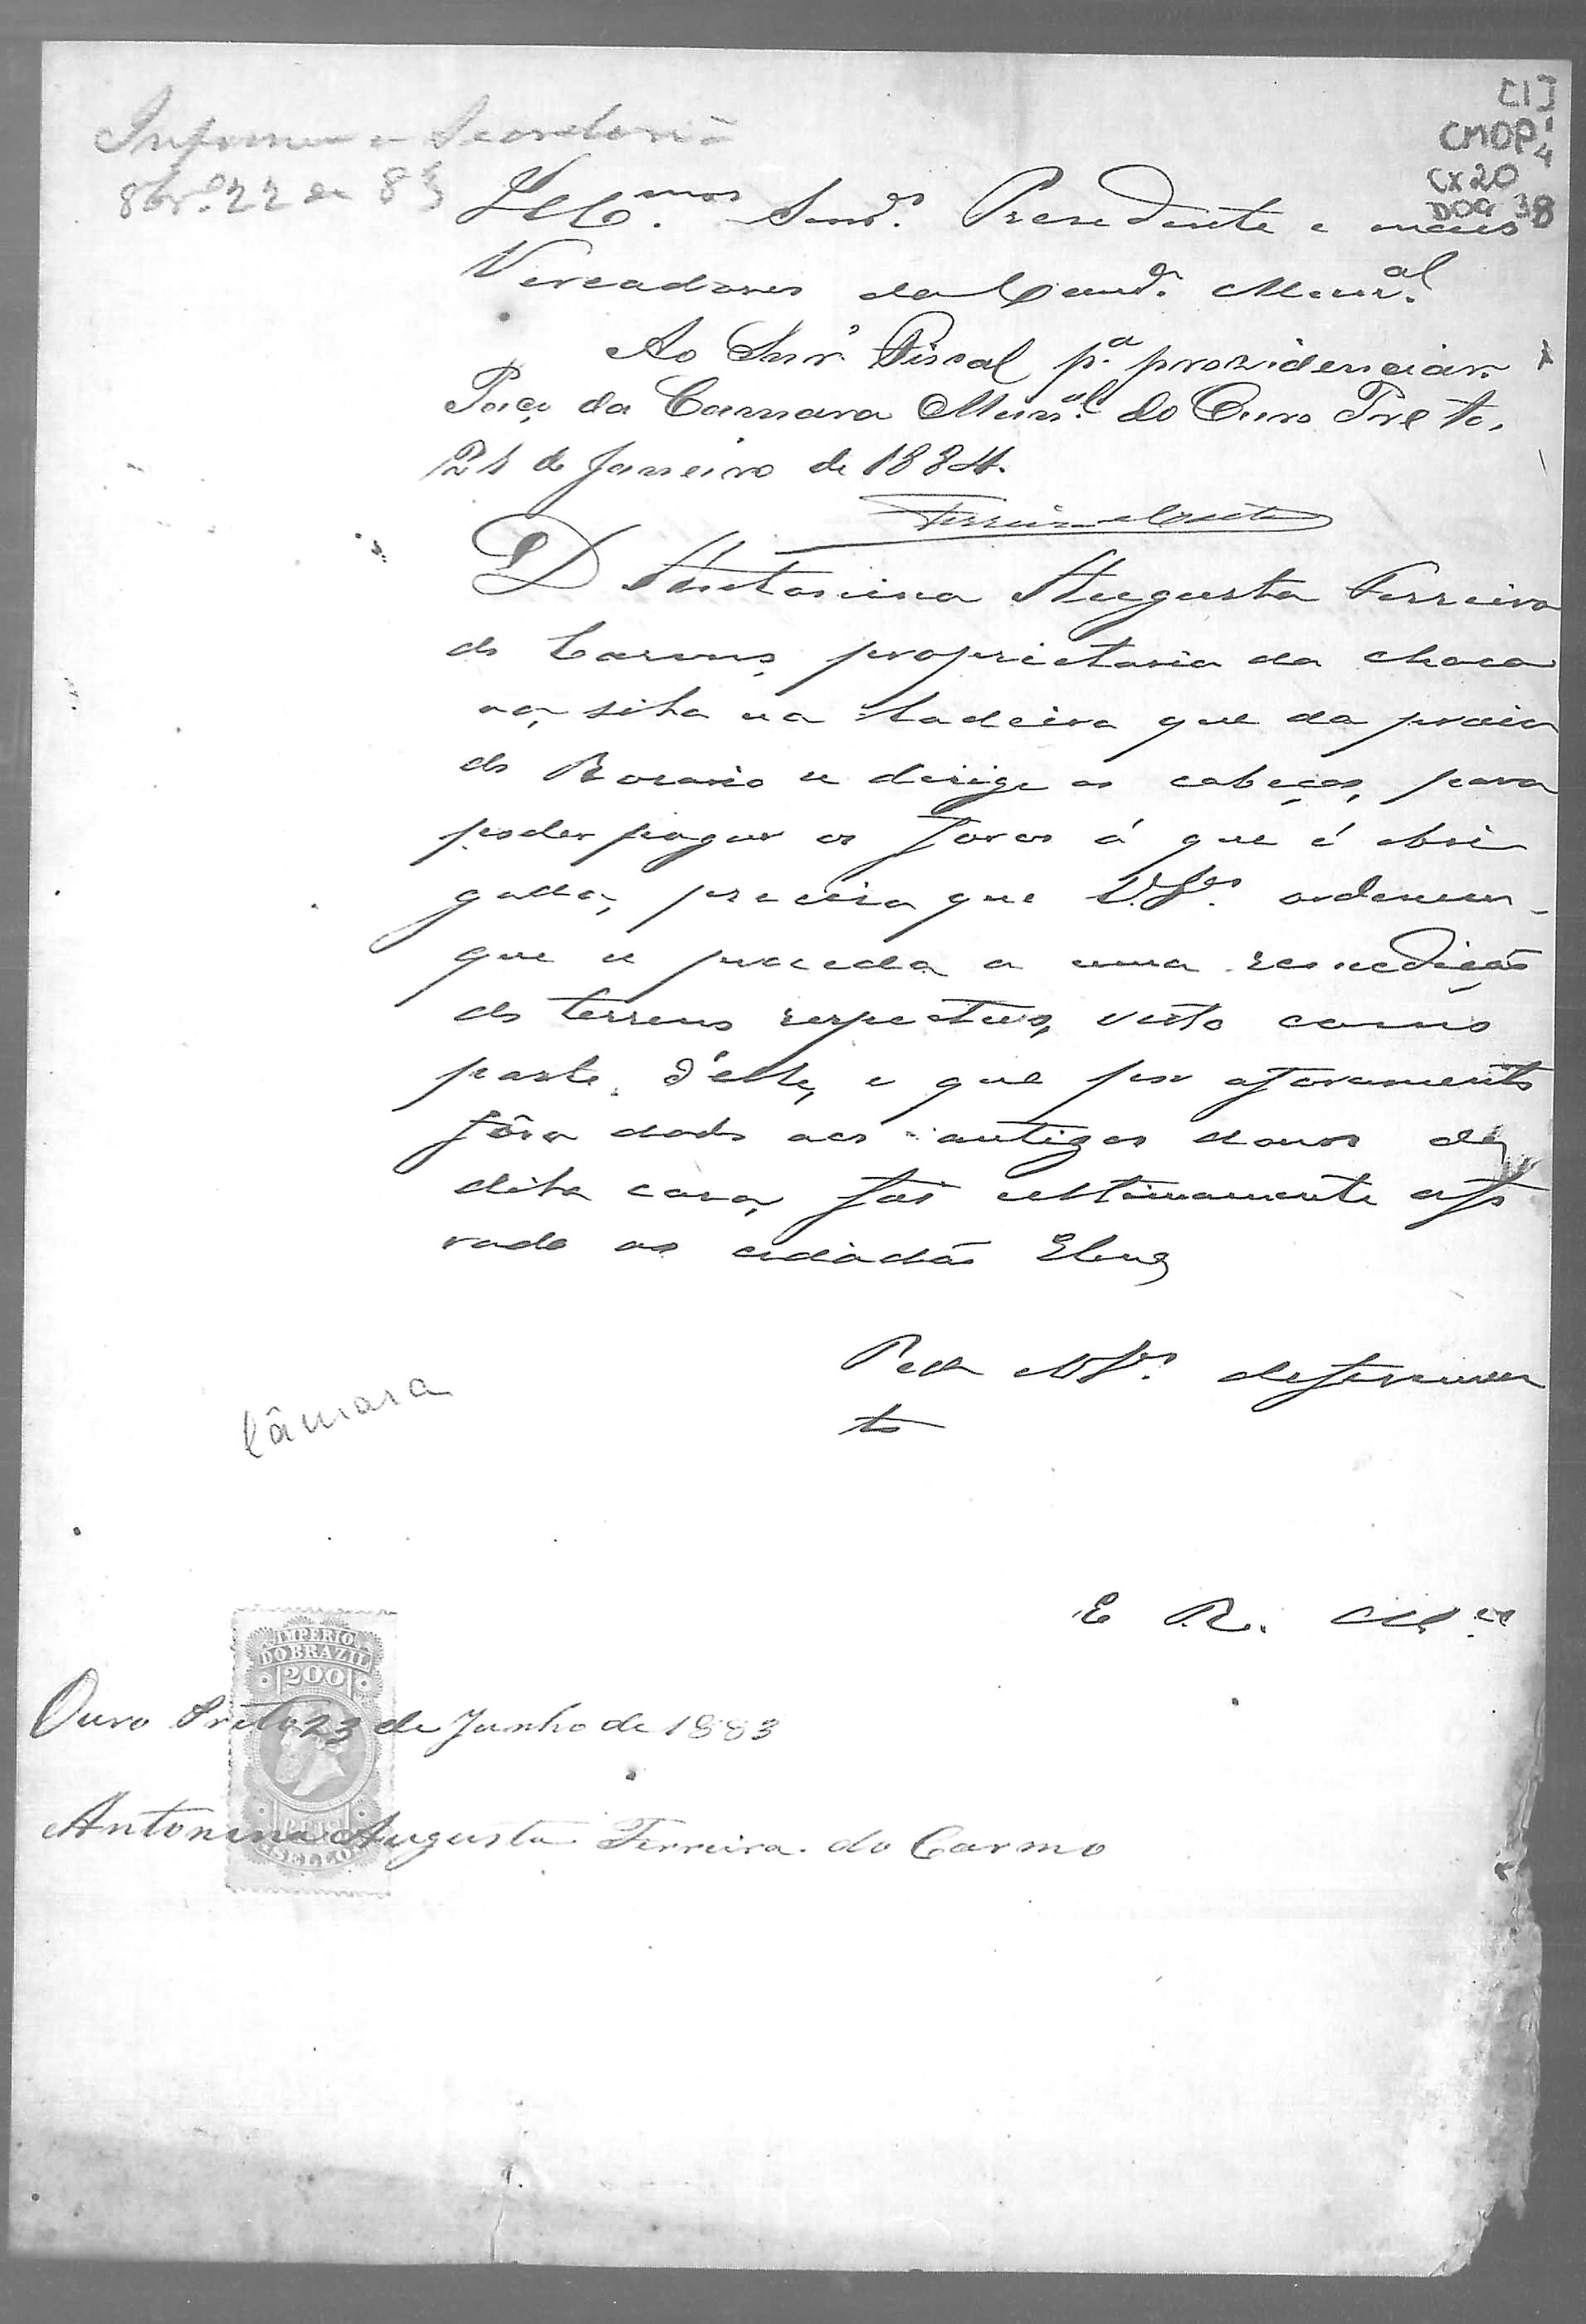 [1]
CMOP
4
CX 20
DOC 38
Informe a Secretaria
8br.º 22 de 83
Ill.mos Snrs. Presidente e mais
Vereadores da Cam.ª Mun.al
Ao Snr. Fiscal p.ª providenciar.
Paço da Camara Mun.al do Ouro Preto,
21 de Janeiro de 1884.
Ferreira
D Antonina Augusta Ferreira
do Carmo, proprietaria da chaca
ra, sita na ladeira que da praia
do Rosario se dirige as cabeças, para
poder pagar os foros á que é obri
gada, precisa que V.Sas. ordenem
que se proceda a uma remedição
do terreno respectivo, visto como
parte d'elle, e que por aforamento
fôra dado aos antigos donos da
dita casa, foi ultimamente afo
rado ao cidadão
Pede a V.Sas. deferimen
to
Câmara
E. R. M.ce
IMPERIO
DO BRAZIL
200
REIS
SELLO
Ouro Preto 23 de Junho de 1883
Antonina Augusta Ferreira do Carmo